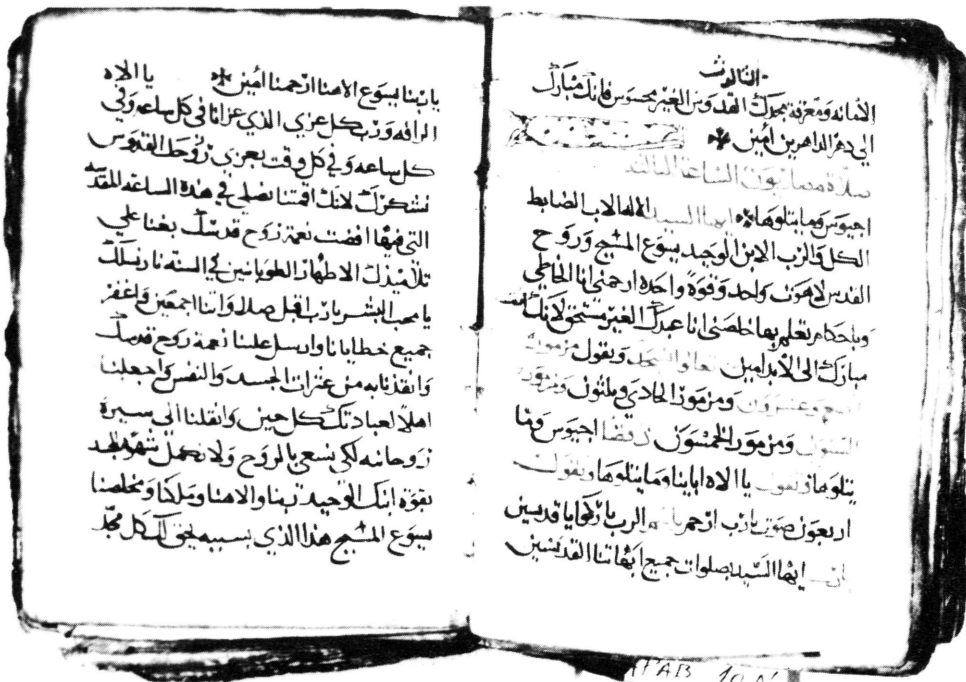 الثالوث
الامانه ومعرفة بمجدك القدوس الغير محسوس فانك مبارك
الي دهر الداهرين امين
صلاة الساعة الثالثة
اجيوس وما يتلوها ايها السيد الاله الاب الضابط
الكل والرب الابن الوحيد يسوع المسيح وروح
القدس لاهوت واحد وقوة واحده ارحمني انا الخاطي
وباحكام تعلم بها خلصني انا عبدك الغير مستحق لانك انت
مبارك الى الابد امين تعالوا نسجد ويقول مزمور
وعشرون ومزمور الحادي وثلثون ومزمور
الستون ومزمور الخمسون اجيوس وما
يتلوها وتقول يا الاه ابائنا وما يتلوها وتقول
اربعون صوت يارب ارحم باسم الرب باركوا يا قديسين
ايها السيد بصلوات جميع ابهاتنا القديسين
يا ربنا يسوع الاهنا ارحمنا امين يا الاه
الرافه ورب كل عزي الذي عزانا في كل ساعه وفي
كل ساعه وفي كل وقت بعزي روحك القدوس
نشكرك لانك اقمتنا نصلي في هذه الساعه المقدسه
التي فيها افضت نعمة روح قدسك بغنا علي
تلاميذك الاطهار الطوبانيين في السنه نار نسلك
يا محب البشر يا رب اقبل صلاواتنا اجمعين واغفر
جميع خطايانا وارسل علينا نعمة روح قدسك
وانقذنا به من عثرات الجسد والنفس واجعلنا
اهلا لعبادتك كل حين وانقلنا الي سيرة
روحانيه لكي نسعي بالروح ولا نكمل شهوه الجسد
بقوة ابنك الوحيد ربنا والاهنا وملكنا ومخلصنا
يسوع المسيح هذا الذي بسببه يحق لك كل مجد
ARAB 10 N